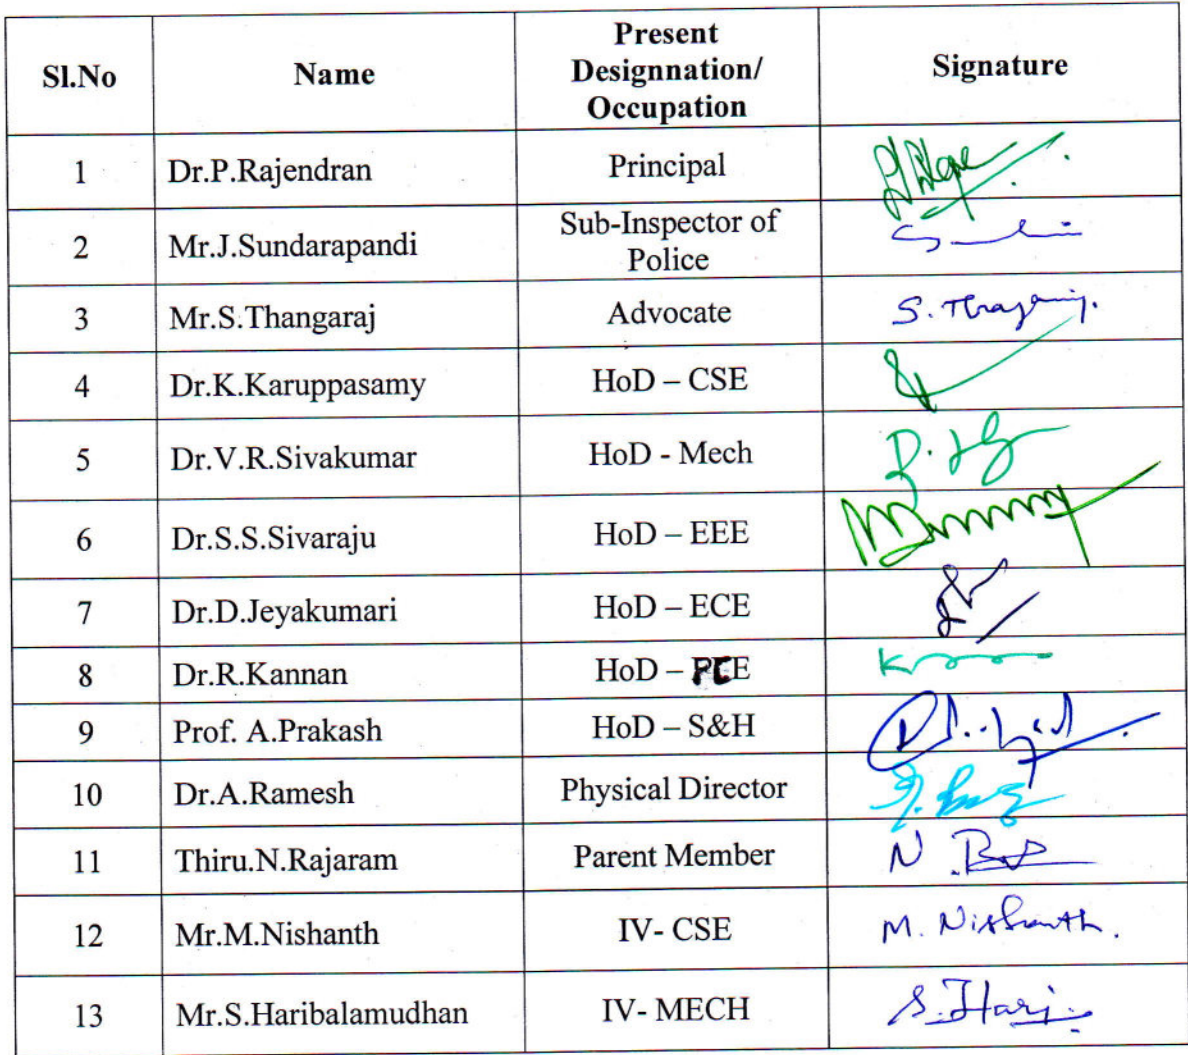 Sl.No Name Present Designnation/ Occupation Signature
1 Dr.P.Rajendran Principal
2 Mr.J.Sundarapandi Sub-Inspector of Police
3 Mr.S.Thangaraj Advocate
4 Dr.K.Karuppasamy HoD – CSE
5 Dr.V.R.Sivakumar HoD - Mech
6 Dr.S.S.Sivaraju HoD – EEE
7 Dr.D.Jeyakumari HoD – ECE
8 Dr.R.Kannan HoD – PCE
9 Prof. A.Prakash HoD – S&H
10 Dr.A.Ramesh Physical Director
11 Thiru.N.Rajaram Parent Member N.
12 Mr.M.Nishanth IV- CSE M. Nishanth.
13 Mr.S.Haribalamudhan IV- MECH S. Hari